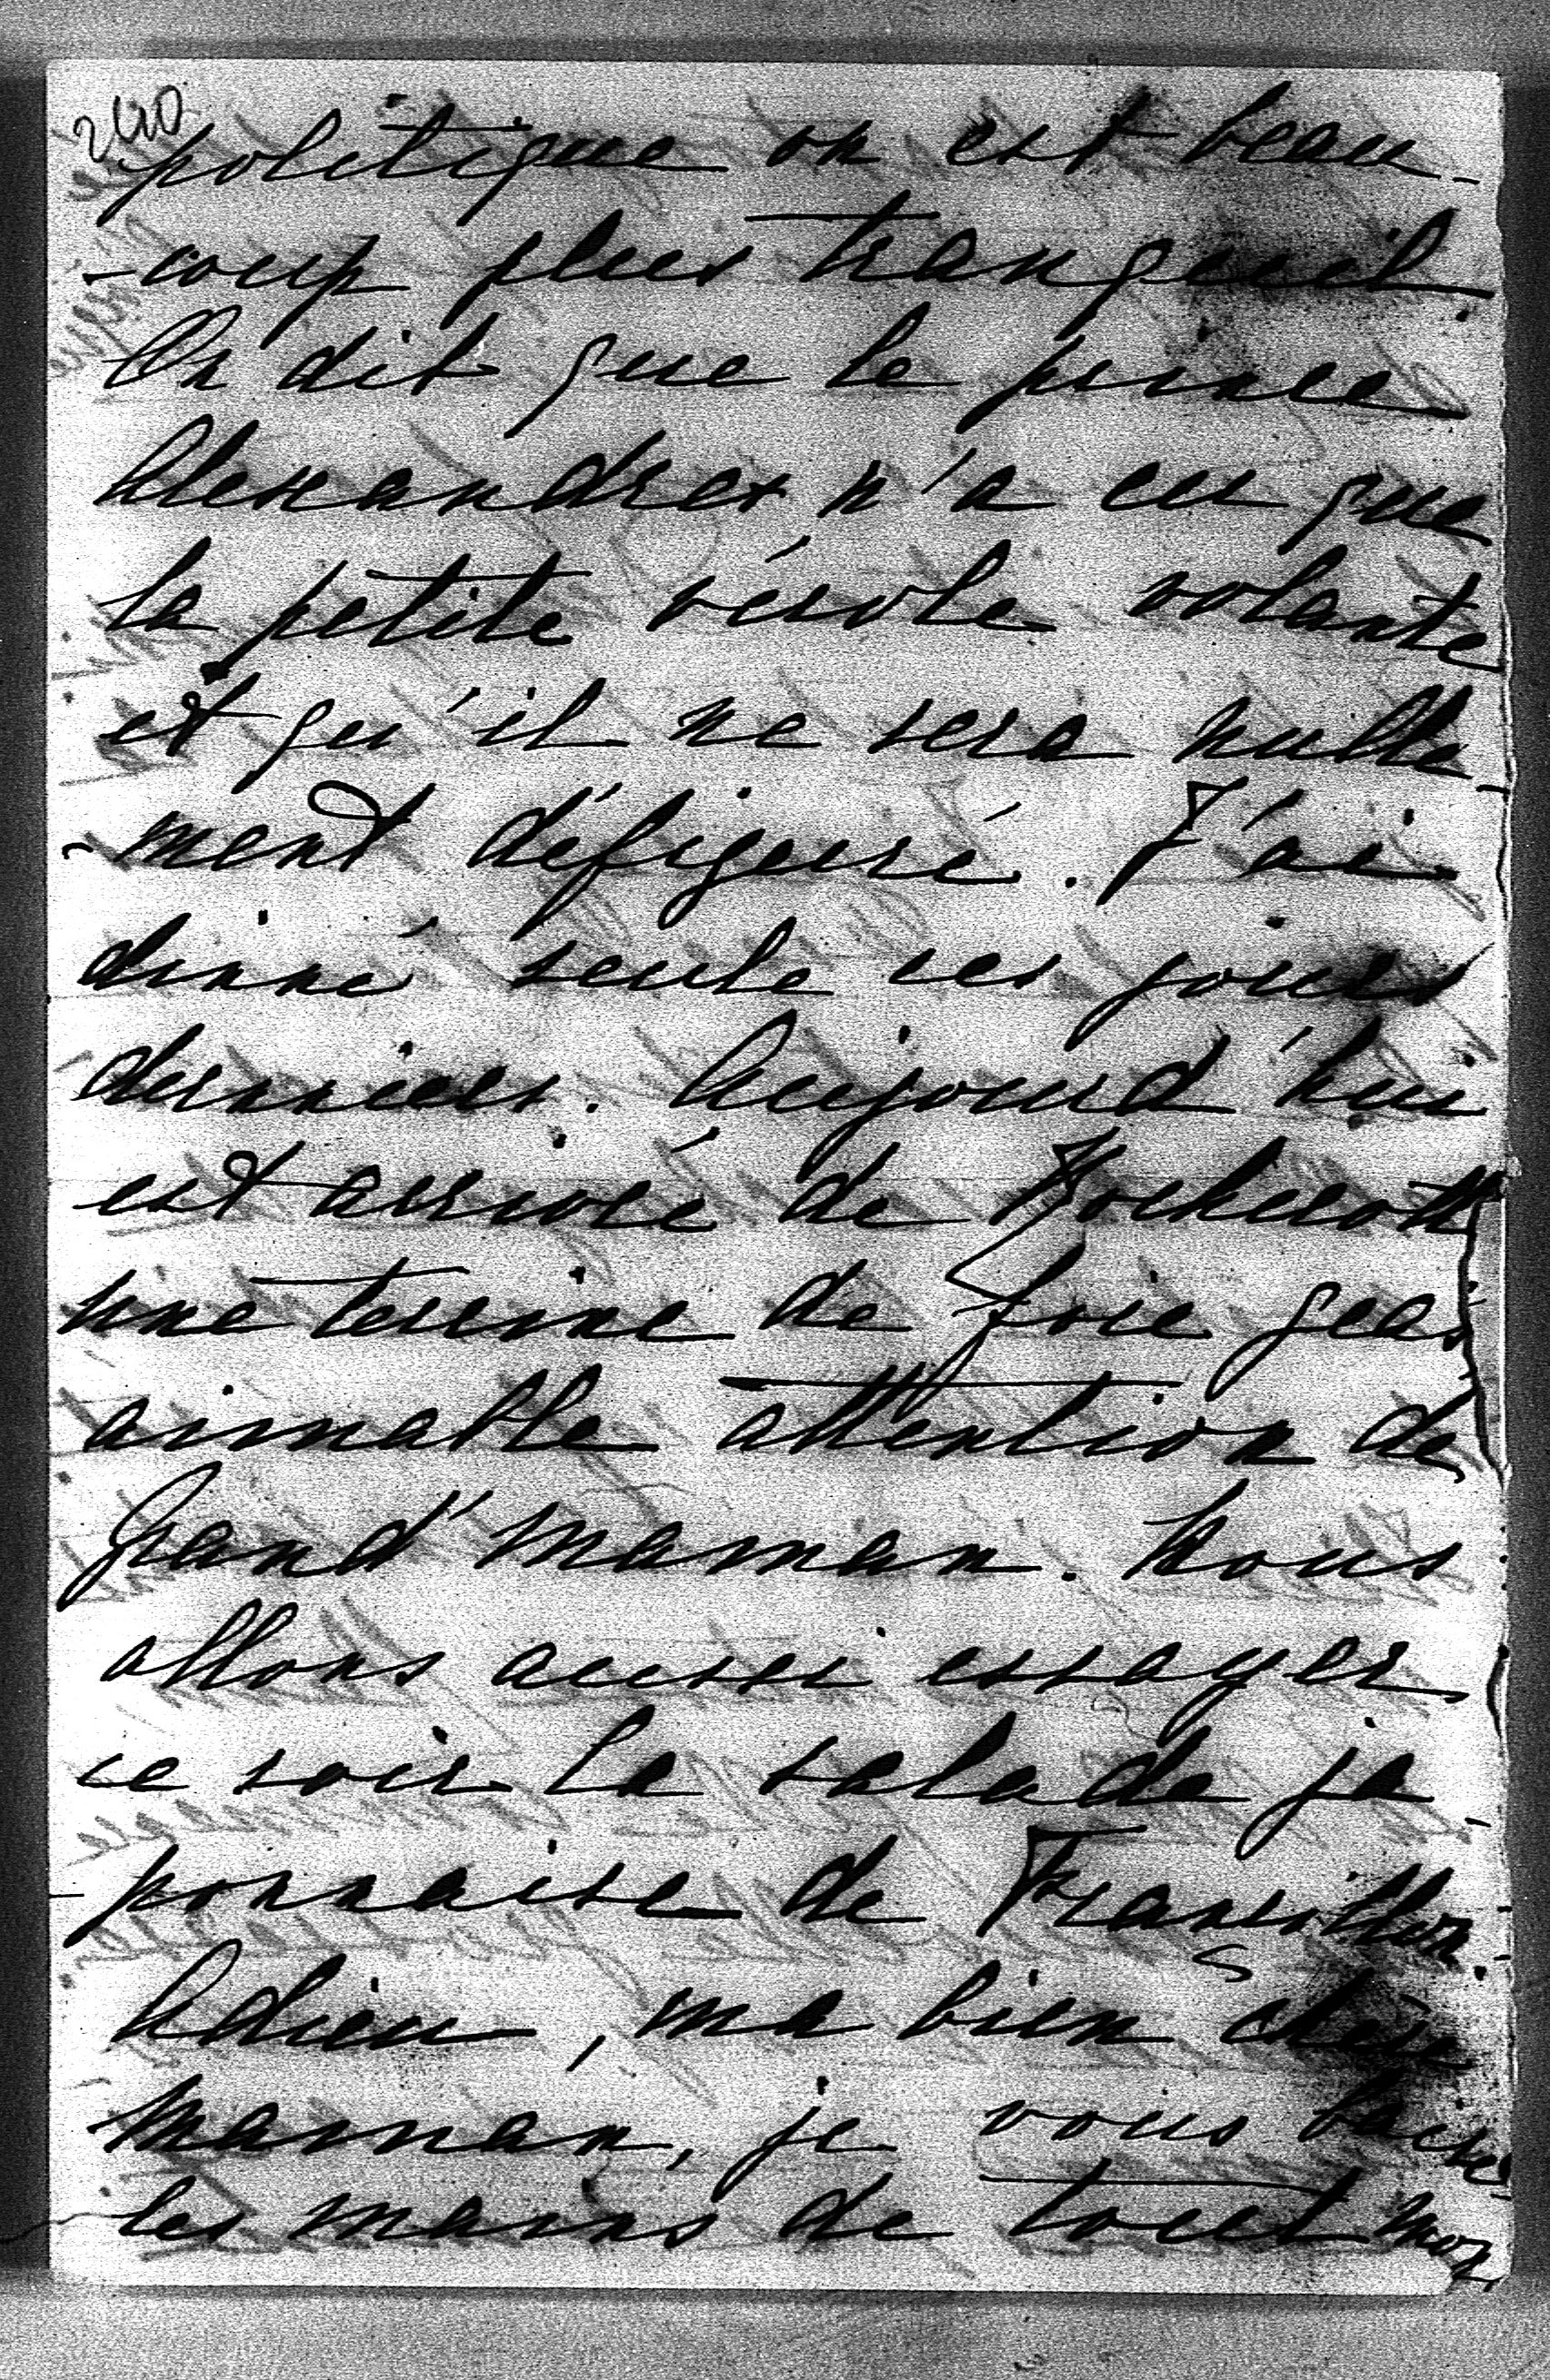 240
politique on est beau-
-coup plus tranquil.
On dit que le prince
Alexandre n'a eu que
la petite vérole volante
et qu'il ne sera nulle-
-ment défiguré. J'ai
dinné seule ces jours
derniers. Aujourd'hui
est arrivé de
une terrine de foie gras
aimable attention de
Grand'maman. Nous
allons aussi essayer
ce soir la salade ja-
-ponnaise de Francillon.
Adieu, ma bien chère
maman, je vous baise
les mains de tout mon